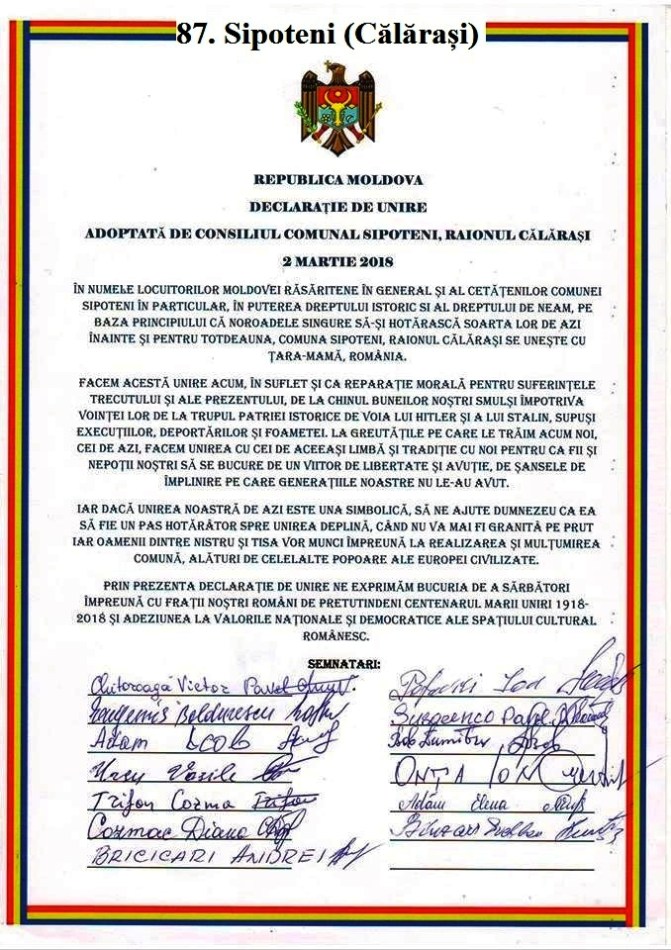 87. Sipoteni (Călărași)
REPUBLICA MOLDOVA
DECLARAȚIE DE UNIRE
ADOPTATĂ DE CONSILIUL COMUNAL SIPOTENI, RAIONUL CĂLĂRAȘI
2 MARTIE 2018
ÎN NUMELE LOCUITORILOR MOLDOVEI RĂSĂRITENE ÎN GENERAL ȘI AL CETĂȚENILOR COMUNEI
SIPOTENI ÎN PARTICULAR, ÎN PUTEREA DREPTULUI ISTORIC SI AL DREPTULUI DE NEAM, PE
BAZA PRINCIPIULUI CĂ NOROADELE SINGURE SĂ-ȘI HOTĂRASCĂ SOARTA LOR DE AZI
ÎNAINTE ȘI PENTRU TOTDEAUNA, COMUNA SIPOTENI, RAIONUL CĂLĂRAȘI SE UNEȘTE CU
ȚARA-MAMĂ, ROMÂNIA.
FACEM ACESTĂ UNIRE ACUM, ÎN SUFLET ȘI CA REPARAȚIE MORALĂ PENTRU SUFERINȚELE
TRECUTULUI ȘI ALE PREZENTULUI, DE LA CHINUL BUNEILOR NOȘTRI SMULȘI ÎMPOTRIVA
VOINȚEI LOR DE LA TRUPUL PATRIEI ISTORICE DE VOIA LUI HITLER ȘI A LUI STALIN, SUPUȘI
EXECUȚIILOR, DEPORTĂRILOR ȘI FOAMETEI. LA GREUTĂȚILE PE CARE LE TRĂIM ACUM NOI,
CEI DE AZI, FACEM UNIREA CU CEI DE ACEEAȘI LIMBĂ ȘI TRADIȚIE CU NOI PENTRU CA FII ȘI
NEPOȚII NOȘTRI SĂ SE BUCURE DE UN VIITOR DE LIBERTATE ȘI AVUȚIE, DE ȘANSELE DE
ÎMPLINIRE PE CARE GENERAȚIILE NOASTRE NU LE-AU AVUT.
IAR DACĂ UNIREA NOASTRĂ DE AZI ESTE UNA SIMBOLICĂ, SĂ NE AJUTE DUMNEZEU CA EA
SĂ FIE UN PAS HOTĂRÂTOR SPRE UNIREA DEPLINĂ, CÂND NU VA MAI FI GRANITĂ PE PRUT
IAR OAMENII DINTRE NISTRU ȘI TISA VOR MUNCI ÎMPREUNĂ LA REALIZAREA ȘI MULȚUMIREA
COMUNĂ, ALĂTURI DE CELELALTE POPOARE ALE EUROPEI CIVILIZATE.
PRIN PREZENTA DECLARAȚIE DE UNIRE NE EXPRIMĂM BUCURIA DE A SĂRBĂTORI
ÎMPREUNĂ CU FRAȚII NOȘTRI ROMÂNI DE PRETUTINDENI CENTENARUL MARII UNIRI 1918-
2018 ȘI ADEZIUNEA LA VALORILE NAȚIONALE ȘI DEMOCRATICE ALE SPAȚIULUI CULTURAL
ROMÂNESC.
SEMNATARI:
Chitoroagă Victor Pavel
Ion
Adam
Dumitru
Vasile
ONȚA ION
Trifon Cozma
Adam Elena
Cozmac Diana
BRICICARI ANDREI